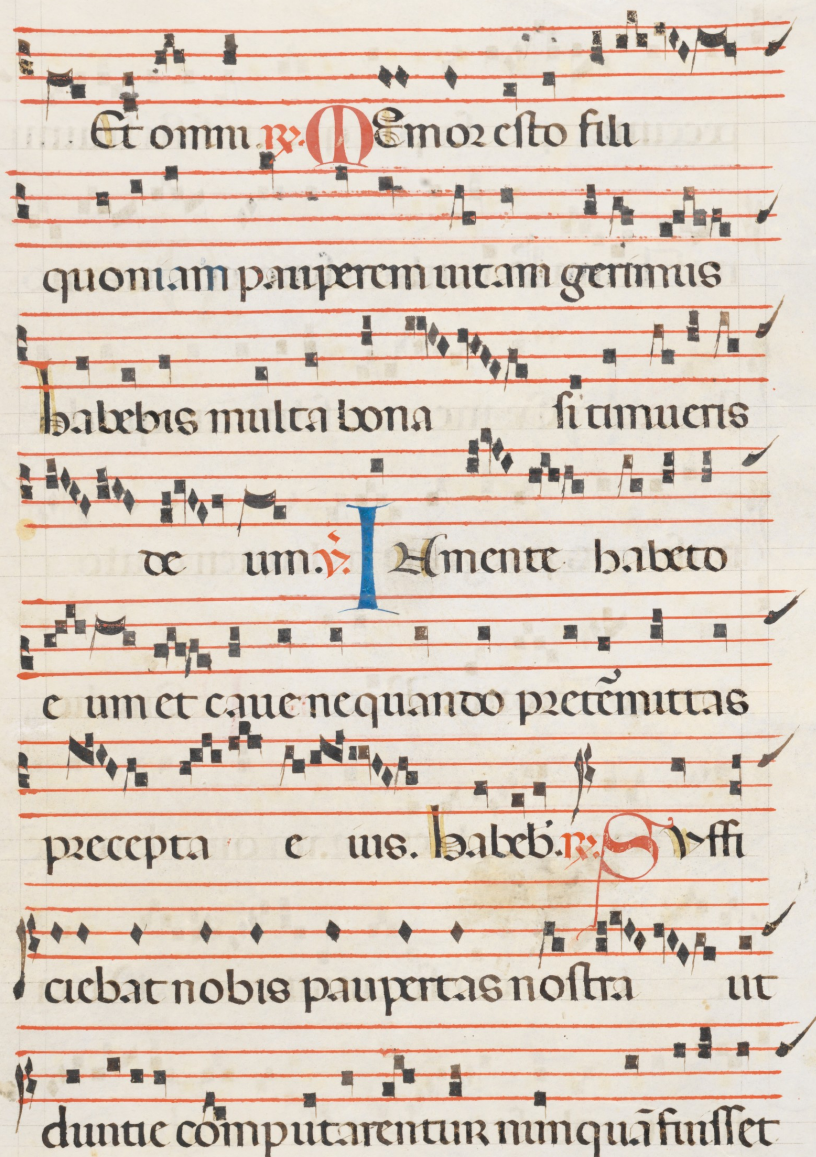 Et omni. ℞. MEmor esto fili
quoniam pauperem uitam gerimus
habebis multa bona si timueris
deum. ℣. INmente habeto
eum et caue nequando pretẽmittas
precepta eius. habeb'. ℞. Suffi
ciebat nobis paupertas nostra ut
duntie computarentur nunquã fuisset